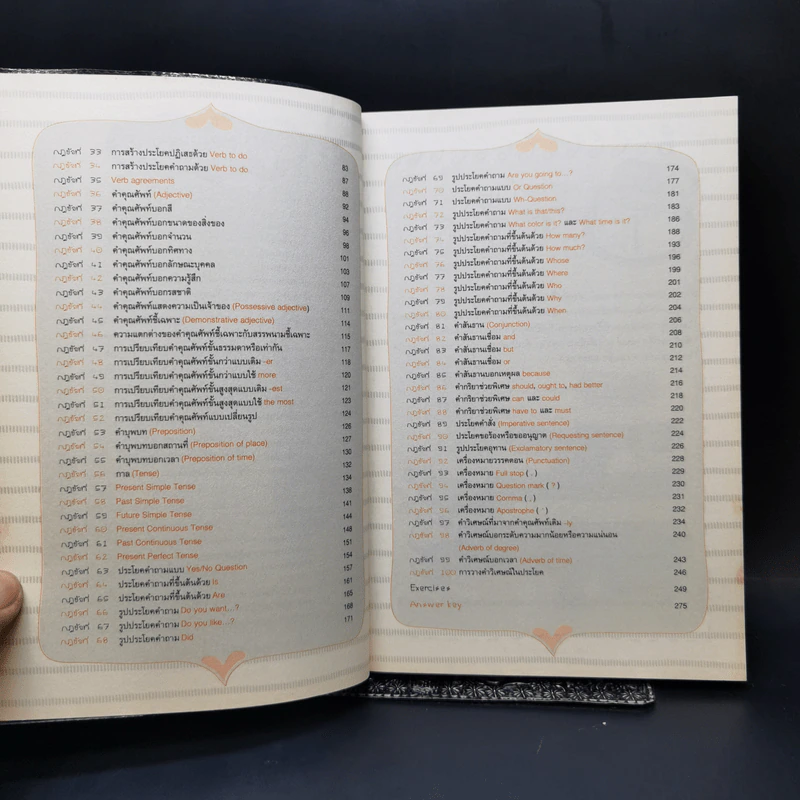 กฎข้อที่ 33 การสร้างประโยคปฏิเสธด้วย Verb to do 83
กฎข้อที่ 34 การสร้างประโยคคำถามด้วย Verb to do 87
กฎข้อที่ 35 Verb agreements 88
กฎข้อที่ 36 คำคุณศัพท์ (Adjective) 92
กฎข้อที่ 37 คำคุณศัพท์บอกสี 94
กฎข้อที่ 38 คำคุณศัพท์บอกขนาดของสิ่งของ 96
กฎข้อที่ 39 คำคุณศัพท์บอกจำนวน 98
กฎข้อที่ 40 คำคุณศัพท์บอกทิศทาง 101
กฎข้อที่ 41 คำคุณศัพท์บอกลักษณะบุคคล 103
กฎข้อที่ 42 คำคุณศัพท์บอกความรู้สึก 107
กฎข้อที่ 43 คำคุณศัพท์บอกรสชาติ 109
กฎข้อที่ 44 คำคุณศัพท์แสดงความเป็นเจ้าของ (Possessive adjective) 111
กฎข้อที่ 45 คำคุณศัพท์ชี้เฉพาะ (Demonstrative adjective) 114
กฎข้อที่ 46 ความแตกต่างของคำคุณศัพท์ชี้เฉพาะกับสรรพนามชี้เฉพาะ 115
กฎข้อที่ 47 การเปรียบเทียบคำคุณศัพท์ขั้นธรรมดาหรือเท่ากัน 117
กฎข้อที่ 48 การเปรียบเทียบคำคุณศัพท์ขั้นกว่าแบบเติม -er 119
กฎข้อที่ 49 การเปรียบเทียบคำคุณศัพท์ขั้นกว่าแบบใช้ more
กฎข้อที่ 50 การเปรียบเทียบคำคุณศัพท์ขั้นสูงสุดแบบเติม -est 121
กฎข้อที่ 51 การเปรียบเทียบคำคุณศัพท์ขั้นสูงสุดแบบใช้ the most 123
กฎข้อที่ 52 การเปรียบเทียบคำคุณศัพท์แบบเปลี่ยนรูป 124
กฎข้อที่ 53 คำบุพบท (Preposition) 126
กฎข้อที่ 54 คำบุพบทบอกสถานที่ (Preposition of place) 127
กฎข้อที่ 55 คำบุพบทบอกเวลา (Preposition of time) 130
กฎข้อที่ 56 กาล (Tense) 132
กฎข้อที่ 57 Present Simple Tense 134
กฎข้อที่ 58 Past Simple Tense 138
กฎข้อที่ 59 Future Simple Tense 141
กฎข้อที่ 60 Present Continuous Tense 144
กฎข้อที่ 61 Past Continuous Tense 148
กฎข้อที่ 62 Present Perfect Tense 151
กฎข้อที่ 63 ประโยคคำถามแบบ Yes/No Question 154
กฎข้อที่ 64 ประโยคคำถามที่ขึ้นต้นด้วย Is 157
กฎข้อที่ 65 ประโยคคำถามที่ขึ้นต้นด้วย Are 161
กฎข้อที่ 66 รูปประโยคคำถาม Do you want...? 165
กฎข้อที่ 67 รูปประโยคคำถาม Do you like...? 168
กฎข้อที่ 68 รูปประโยคคำถาม Did 171
กฎข้อที่ 69 รูปประโยคคำถาม Are you going to...? 174
กฎข้อที่ 70 ประโยคคำถามแบบ Or Question 177
กฎข้อที่ 71 ประโยคคำถามแบบ Wh-Question 181
กฎข้อที่ 72 รูปประโยคคำถาม What is that/this? 183
กฎข้อที่ 73 รูปประโยคคำถาม What color is it? และ What time is it? 186
กฎข้อที่ 74 รูปประโยคคำถามที่ขึ้นต้นด้วย How many? 188
กฎข้อที่ 75 รูปประโยคคำถามที่ขึ้นต้นด้วย How much? 193
กฎข้อที่ 76 รูปประโยคคำถามที่ขึ้นต้นด้วย Whose 196
กฎข้อที่ 77 รูปประโยคคำถามที่ขึ้นต้นด้วย Where 199
กฎข้อที่ 78 รูปประโยคคำถามที่ขึ้นต้นด้วย Who 201
กฎข้อที่ 79 รูปประโยคคำถามที่ขึ้นต้นด้วย Why 202
กฎข้อที่ 80 รูปประโยคคำถามที่ขึ้นต้นด้วย When 204
กฎข้อที่ 81 คำสันธาน (Conjunction) 206
กฎข้อที่ 82 คำสันธานเชื่อม and 208
กฎข้อที่ 83 คำสันธานเชื่อม but 210
กฎข้อที่ 84 คำสันธานเชื่อม or 212
กฎข้อที่ 85 คำสันธานบอกเหตุผล because 214
กฎข้อที่ 86 คำกริยาช่วยพิเศษ should, ought to, had better 216
กฎข้อที่ 87 คำกริยาช่วยพิเศษ can และ could 218
กฎข้อที่ 88 คำกริยาช่วยพิเศษ have to และ must 220
กฎข้อที่ 89 ประโยคคำสั่ง (Imperative sentence) 222
กฎข้อที่ 90 ประโยคขอร้องหรือขออนุญาต (Requesting sentence) 224
กฎข้อที่ 91 รูปประโยคอุทาน (Exclamatory sentence) 226
กฎข้อที่ 92 เครื่องหมายวรรคตอน (Punctuation) 228
กฎข้อที่ 93 เครื่องหมาย Full stop ( . ) 229
กฎข้อที่ 94 เครื่องหมาย Question mark ( ? ) 230
กฎข้อที่ 95 เครื่องหมาย Comma ( , ) 231
กฎข้อที่ 96 เครื่องหมาย Apostrophe ( ' ) 232
กฎข้อที่ 97 คำวิเศษณ์ที่มาจากคำคุณศัพท์เติม -ly 234
กฎข้อที่ 98 คำวิเศษณ์บอกระดับความมากน้อยหรือความแน่นอน 240
(Adverb of degree)
กฎข้อที่ 99 คำวิเศษณ์บอกเวลา (Adverb of time) 243
กฎข้อที่ 100 การวางคำวิเศษณ์ในประโยค 246
Exercises 249
Answer key 275